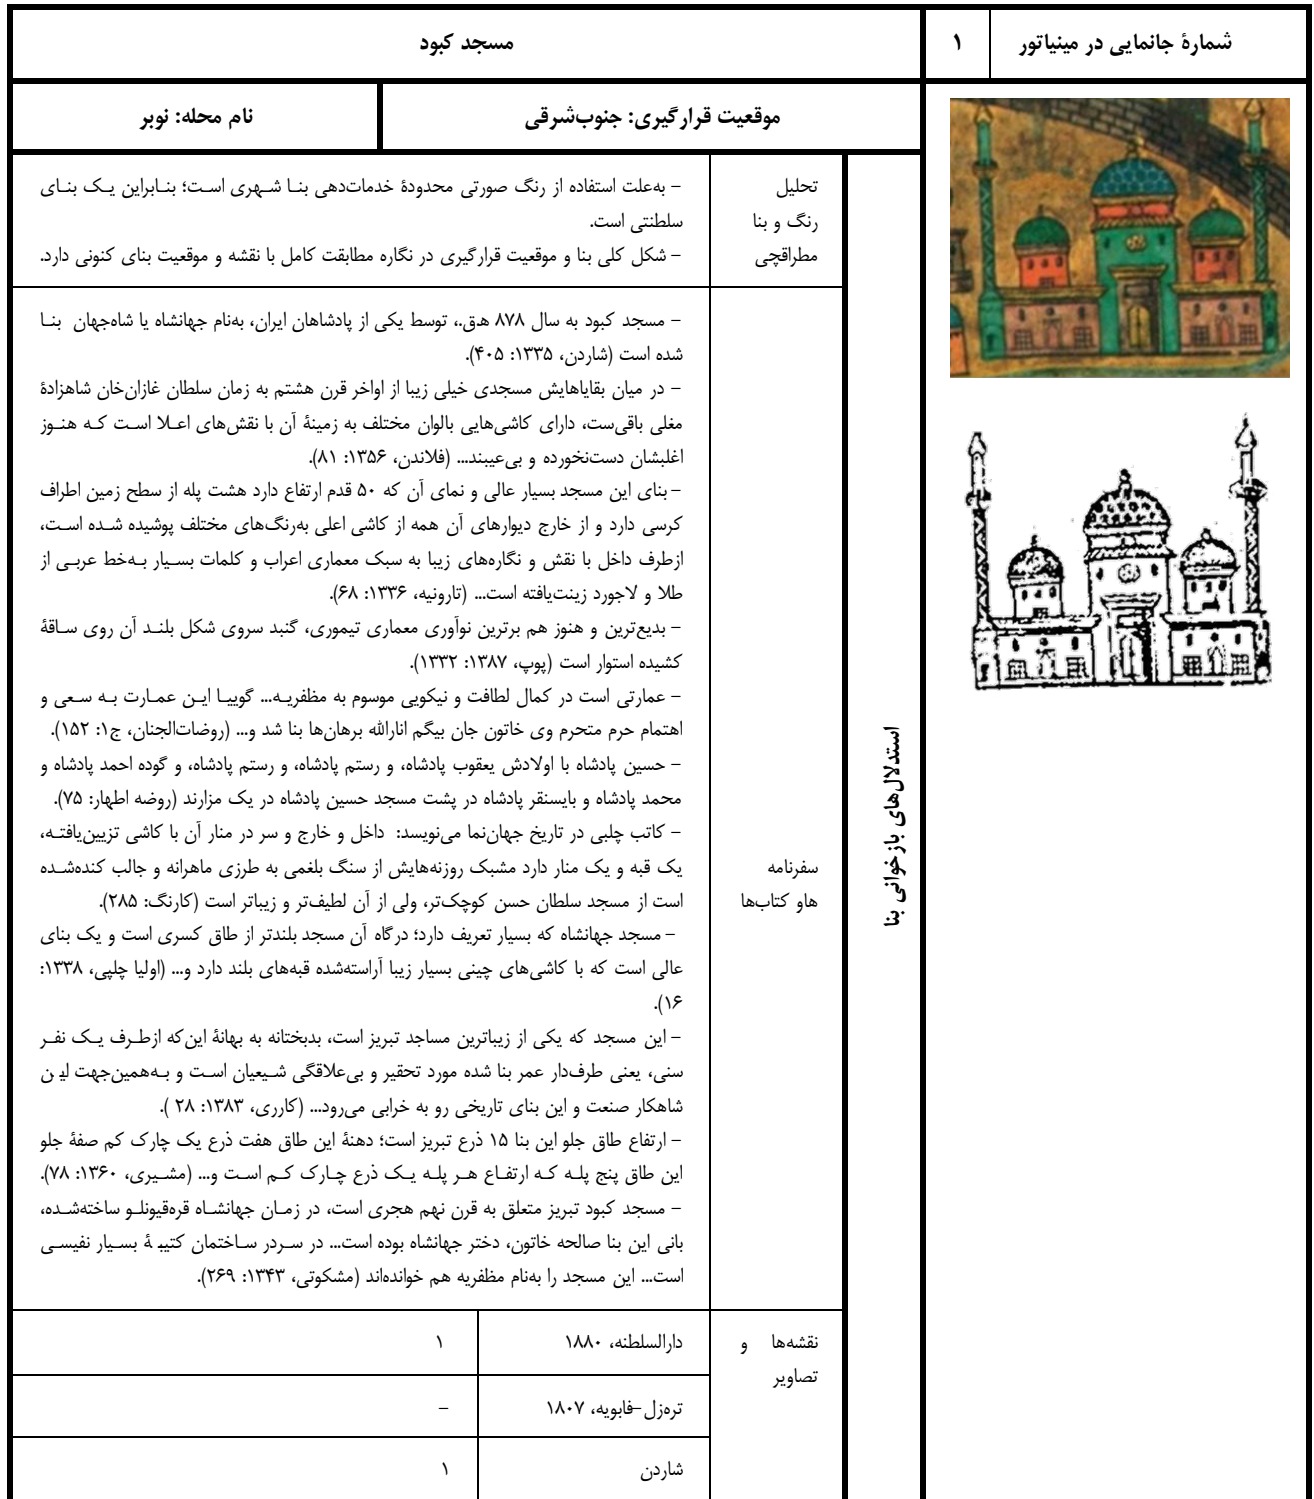 شمارهٔ جانمایی در مینیاتور
۱
مسجد کبود
موقعیت قرارگیری: جنوب‌شرقی
نام محله: نوبر
استدلال‌های بازخوانی بنا
تحلیل
رنگ و بنا
مطراقچی
- به‌علت استفاده از رنگ صورتی محدودهٔ خدمات‌دهی بنا شهری است؛ بنابراین یک بنای
سلطنتی است.
- شکل کلی بنا و موقعیت قرارگیری در نگاره مطابقت کامل با نقشه و موقعیت بنای کنونی دارد.
سفرنامه
هاو کتاب‌ها
- مسجد کبود به سال ۸۷۸ ه‍.ق.، توسط یکی از پادشاهان ایران، به‌نام جهانشاه یا شاه‌جهان بنا
شده است (شاردن، ۱۳۳۵: ۴۰۵).
- در میان بقایاهایش مسجدی خیلی زیبا از اواخر قرن هشتم به زمان سلطان غازان‌خان شاهزادهٔ
مغلی باقی‌ست، دارای کاشی‌هایی بالوان مختلف به زمینهٔ آن با نقش‌های اعلا است که هنوز
اغلبشان دست‌نخورده و بی‌عیبند... (فلاندن، ۱۳۵۶: ۸۱).
- بنای این مسجد بسیار عالی و نمای آن که ۵۰ قدم ارتفاع دارد هشت پله از سطح زمین اطراف
کرسی دارد و از خارج دیوارهای آن همه از کاشی اعلی به‌رنگ‌های مختلف پوشیده شده است،
ازطرف داخل با نقش و نگاره‌های زیبا به سبک معماری اعراب و کلمات بسیار به‌خط عربی از
طلا و لاجورد زینت‌یافته است... (تارونیه، ۱۳۳۶: ۶۸).
- بدیع‌ترین و هنوز هم برترین نوآوری معماری تیموری، گنبد سروی شکل بلند آن روی ساقهٔ
کشیده استوار است (پوپ، ۱۳۸۷: ۱۳۳۲).
- عمارتی است در کمال لطافت و نیکویی موسوم به مظفریه... گوییا این عمارت به سعی و
اهتمام حرم متحرم وی خاتون جان بیگم انارالله برهان‌ها بنا شد و... (روضات‌الجنان، ج۱: ۱۵۲).
- حسین پادشاه با اولادش یعقوب پادشاه، و رستم پادشاه، و رستم پادشاه، و گوده احمد پادشاه و
محمد پادشاه و بایسنقر پادشاه در پشت مسجد حسین پادشاه در یک مزارند (روضه اطهار: ۷۵).
- کاتب چلبی در تاریخ جهان‌نما می‌نویسد: داخل و خارج و سر در منار آن با کاشی تزیین‌یافته،
یک قبه و یک منار دارد مشبک روزنه‌هایش از سنگ بلغمی به طرزی ماهرانه و جالب کنده‌شده
است از مسجد سلطان حسن کوچک‌تر، ولی از آن لطیف‌تر و زیباتر است (کارنگ: ۲۸۵).
- مسجد جهانشاه که بسیار تعریف دارد؛ درگاه آن مسجد بلندتر از طاق کسری است و یک بنای
عالی است که با کاشی‌های چینی بسیار زیبا آراسته‌شده قبه‌های بلند دارد و... (اولیا چلپی، ۱۳۳۸:
۱۶).
- این مسجد که یکی از زیباترین مساجد تبریز است، بدبختانه به بهانهٔ این‌که ازطرف یک نفر
سنی، یعنی طرف‌دار عمر بنا شده مورد تحقیر و بی‌علاقگی شیعیان است و به‌همین‌جهت این
شاهکار صنعت و این بنای تاریخی رو به خرابی می‌رود... (کارری، ۱۳۸۳: ۲۸ ).
- ارتفاع طاق جلو این بنا ۱۵ ذرع تبریز است؛ دهنهٔ این طاق هفت ذرع یک چارک کم صفهٔ جلو
این طاق پنج پله که ارتفاع هر پله یک ذرع چارک کم است و... (مشیری، ۱۳۶۰: ۷۸).
- مسجد کبود تبریز متعلق به قرن نهم هجری است، در زمان جهانشاه قره‌قیونلو ساخته‌شده،
بانی این بنا صالحه خاتون، دختر جهانشاه بوده است... در سردر ساختمان کتیبهٔ بسیار نفیسی
است... این مسجد را به‌نام مظفریه هم خوانده‌اند (مشکوتی، ۱۳۴۳: ۲۶۹).
نقشه‌ها و
تصاویر
دارالسلطنه، ۱۸۸۰
۱
تره‌زل-فابویه، ۱۸۰۷
-
شاردن
۱